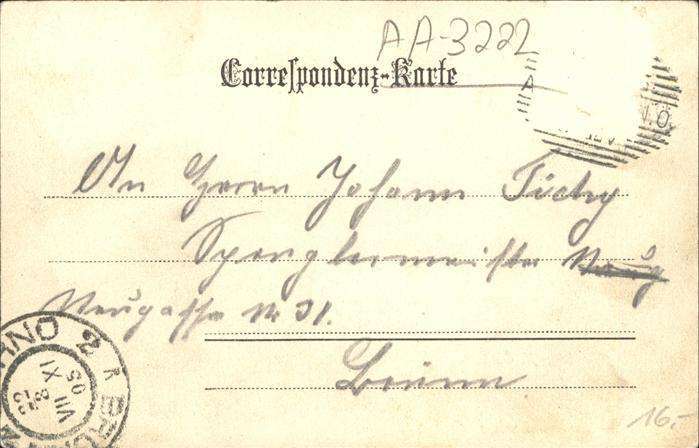 AA-3222
Correspondenz-Karte
An Herrn Johann Tichy
Spenglermeister Neug
Neugasse Nr 31.
Brünn
BRNO 2 BRÜNN
23
VII
XI
8
03
16,-